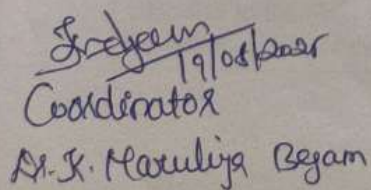 19/08/2025
Coordinator
Dr. K. Maruliya Begam